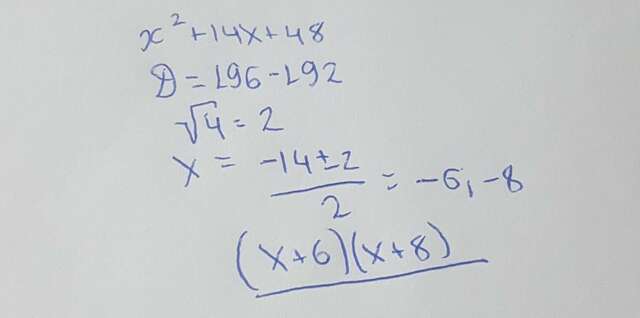 x²+14x+48
D=196-192
√4=2
x = (-14±2)/2 = -6, -8
(x+6)(x+8)